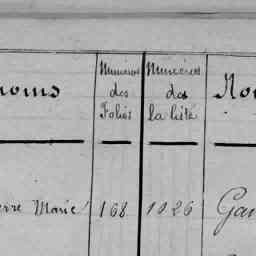 noms Numéros des Folios Numéros de la liste No
erre Marie 168 1026 Gau